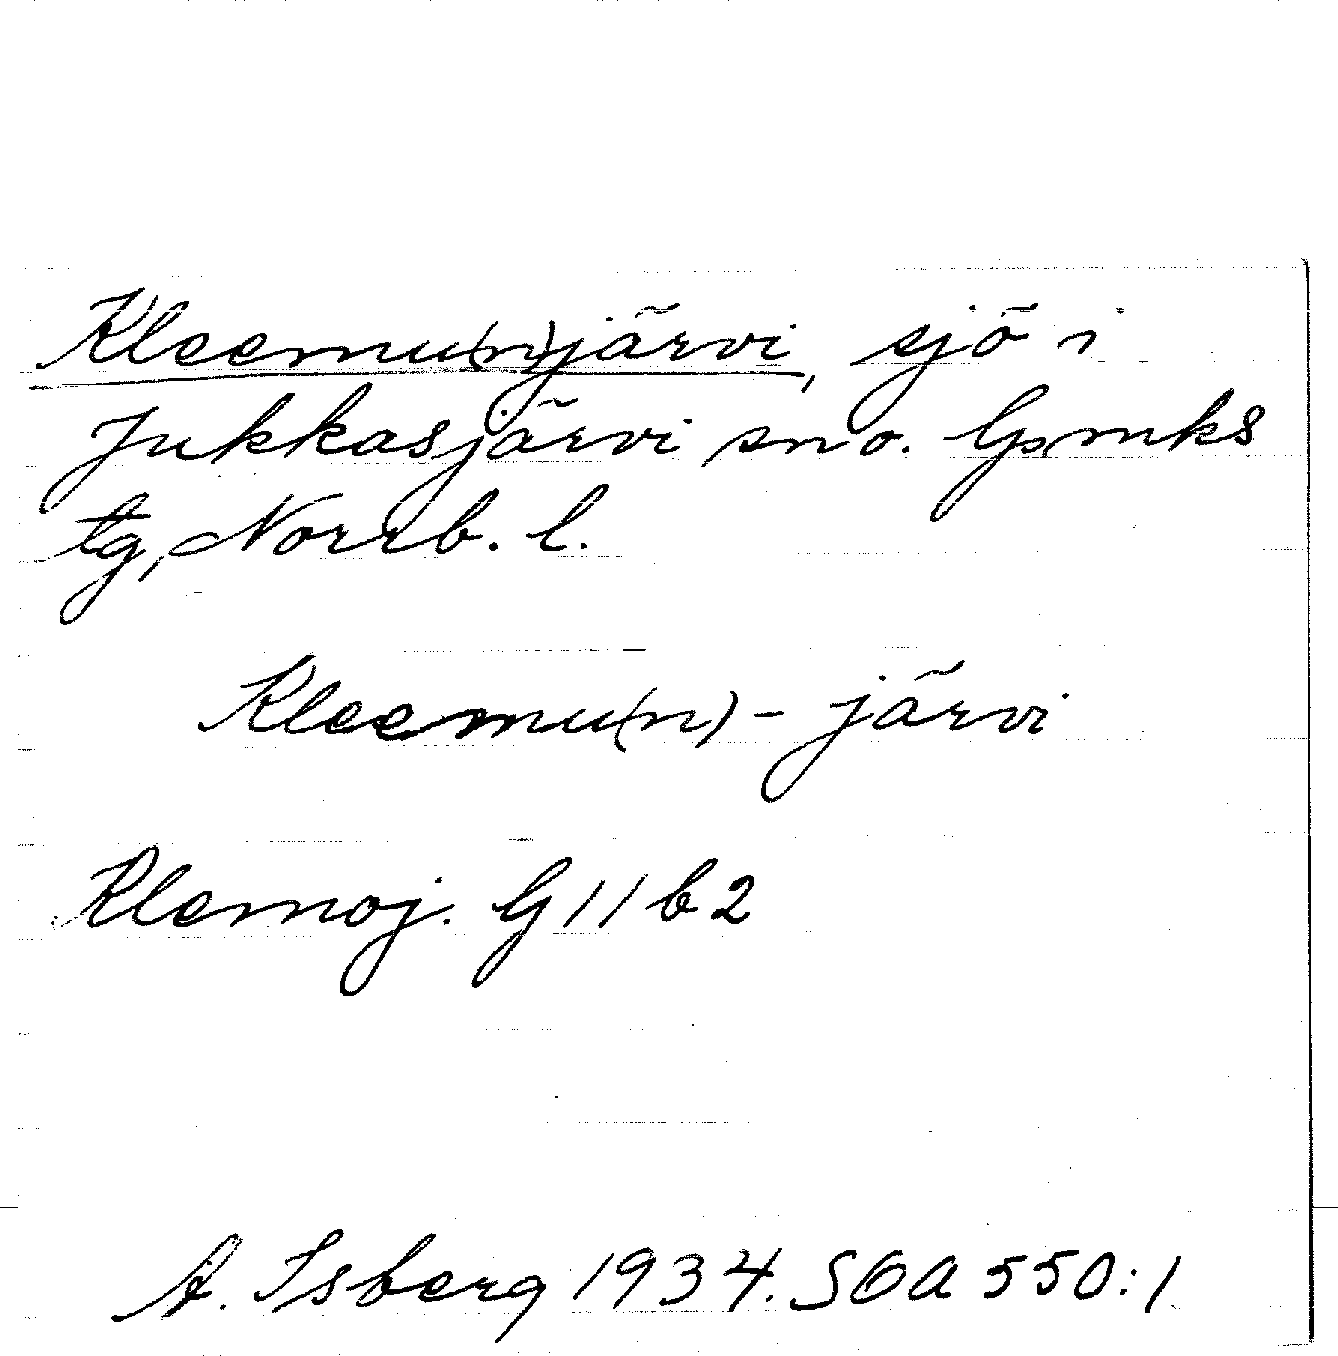 Kleemu(n)järvi, sjö i
Jukkasjärvi sn o. lpmks
tg, Norrb. l.
Kleemu(n)-järvi
Klemoj. G11b2
A. Isberg 1934. SOA 550:1